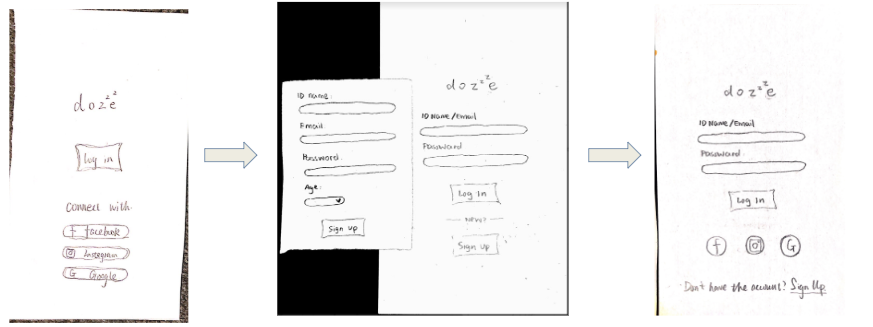 dozᶻᶻe
Log in
Connect with:
f facebook
Instagram
G Google
ID name:
Email
Password:
Age:
Sign Up
dozᶻᶻe
ID Name/Email
Password
Log In
NEW?
Sign Up
dozᶻᶻe
ID Name/Email
Password
Log In
f
G
Don't have the account? Sign Up